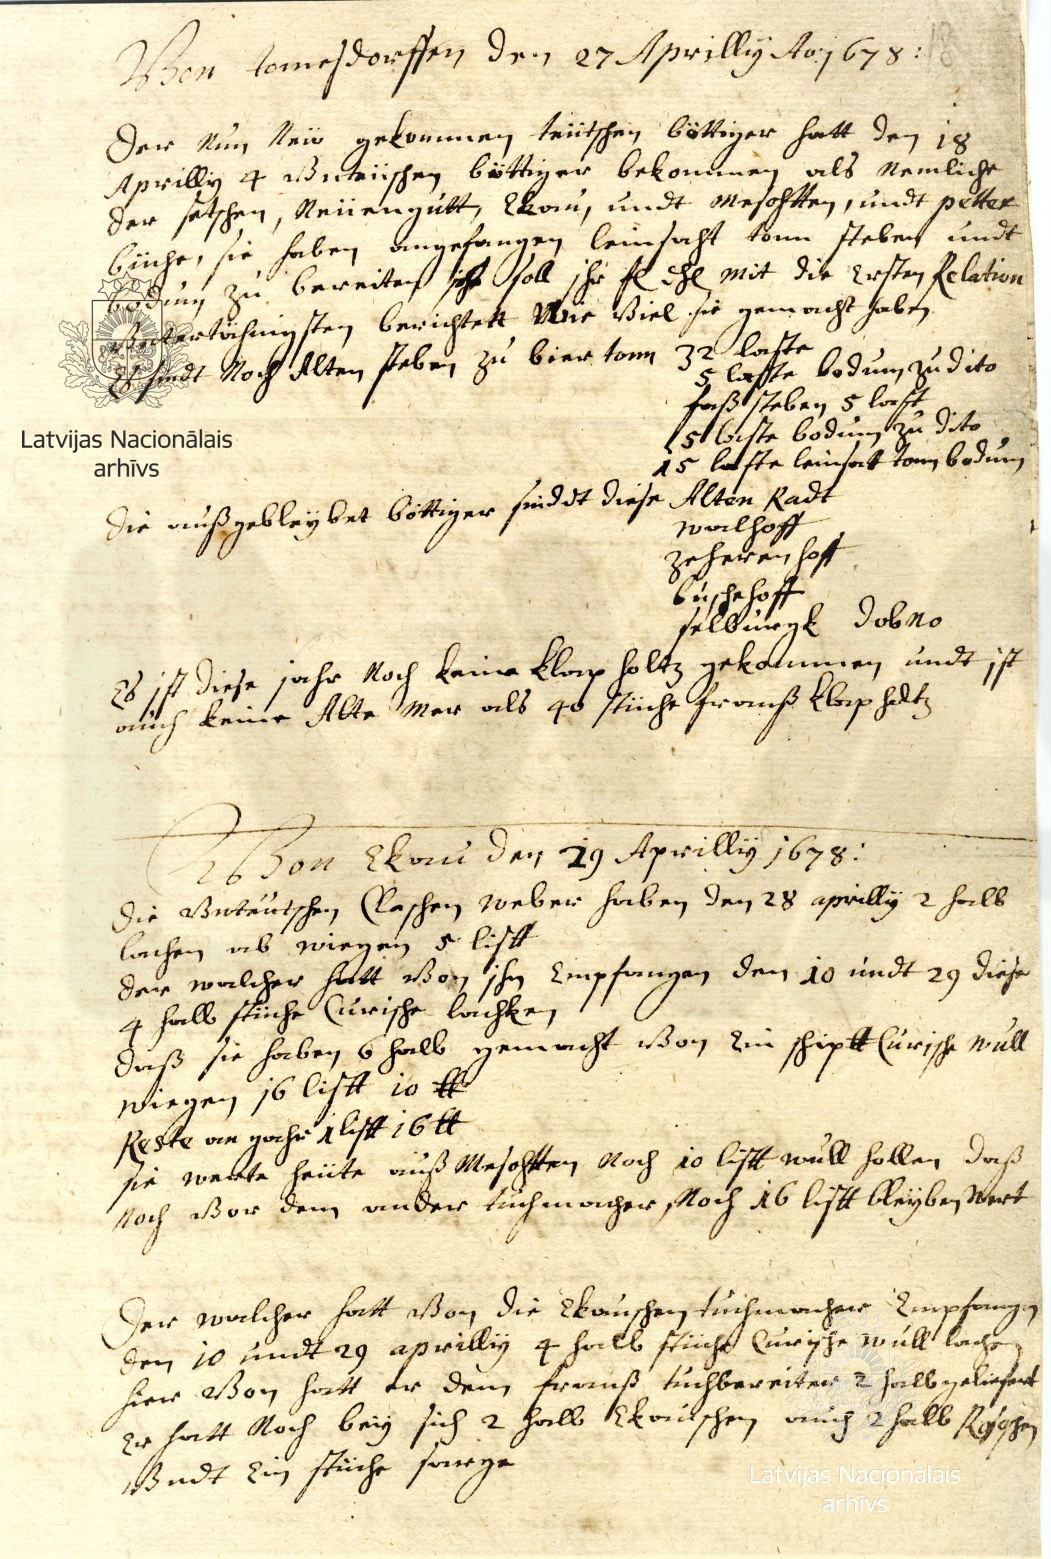 Von tomesdorffen den 27 Aprilly Ao: 1678:
Der Nun Neiv gekommen teütschen böttiger hatt den 18
Aprilly 4 Vnteüschen böttiger bekommen als Nemliche
der setschen, Neüengutt, Ekau, undt Mesohtten, undt petter
büche, sie haben angefangen leinsaht tonn steben undt
bodum zu bereiten ich soll ihr mit die Ersten Relation
Vntertähnigsten berichten Wie Viel sie gemacht haben
Es sindt Noch Alten steben zu bier tonn 32 laste
5 laste bodum zu dito
faß steben 5 last
5 laste bodum zu dito
15 laste leinsatt tonn bodum
Die außgebleybet böttiger sindt diese Alten Radt
walhoff
zeherenhoff
büschehoff
selbürgk dobno
Es ist diese jahr Noch keine klap holtz gekommen undt ist
auch keine Alte Mer als 40 stüche franß klap holtz
Von Ekau den 29 Aprilly 1678:
Die Vnteutschen Claschen weber haben den 28 aprilly 2 halb
lachen ab wiegen 5 listt
der walcher hatt Von ihn Empfangen den 10 undt 29 diese
4 halb stüche Curische lachken
daß sie haben 6 halb gemacht Von Ein schiptt Curische wull
wiegen 16 listt 10 tt
Reste an gahr 1 listt 16 tt
sie werte heüte auß Mesohtten Noch 10 listt wull hollen daß
Noch Vor dem ander tuchmacher Noch 16 listt bleyben wert
Der walcher hatt Von die Ekauschen tuchmacher Empfangen
den 10 undt 29 aprilly 4 halb stüche Curische wull lachen
hier Von hatt er dem franß tuchbereiter 2 halb geliefert
Er hatt Noch bey sich 2 halb Ekauschen auch 2 halb
Vndt Ein stüche sarge
Latvijas Nacionālais
arhīvs
Latvijas Nacionālais
arhīvs